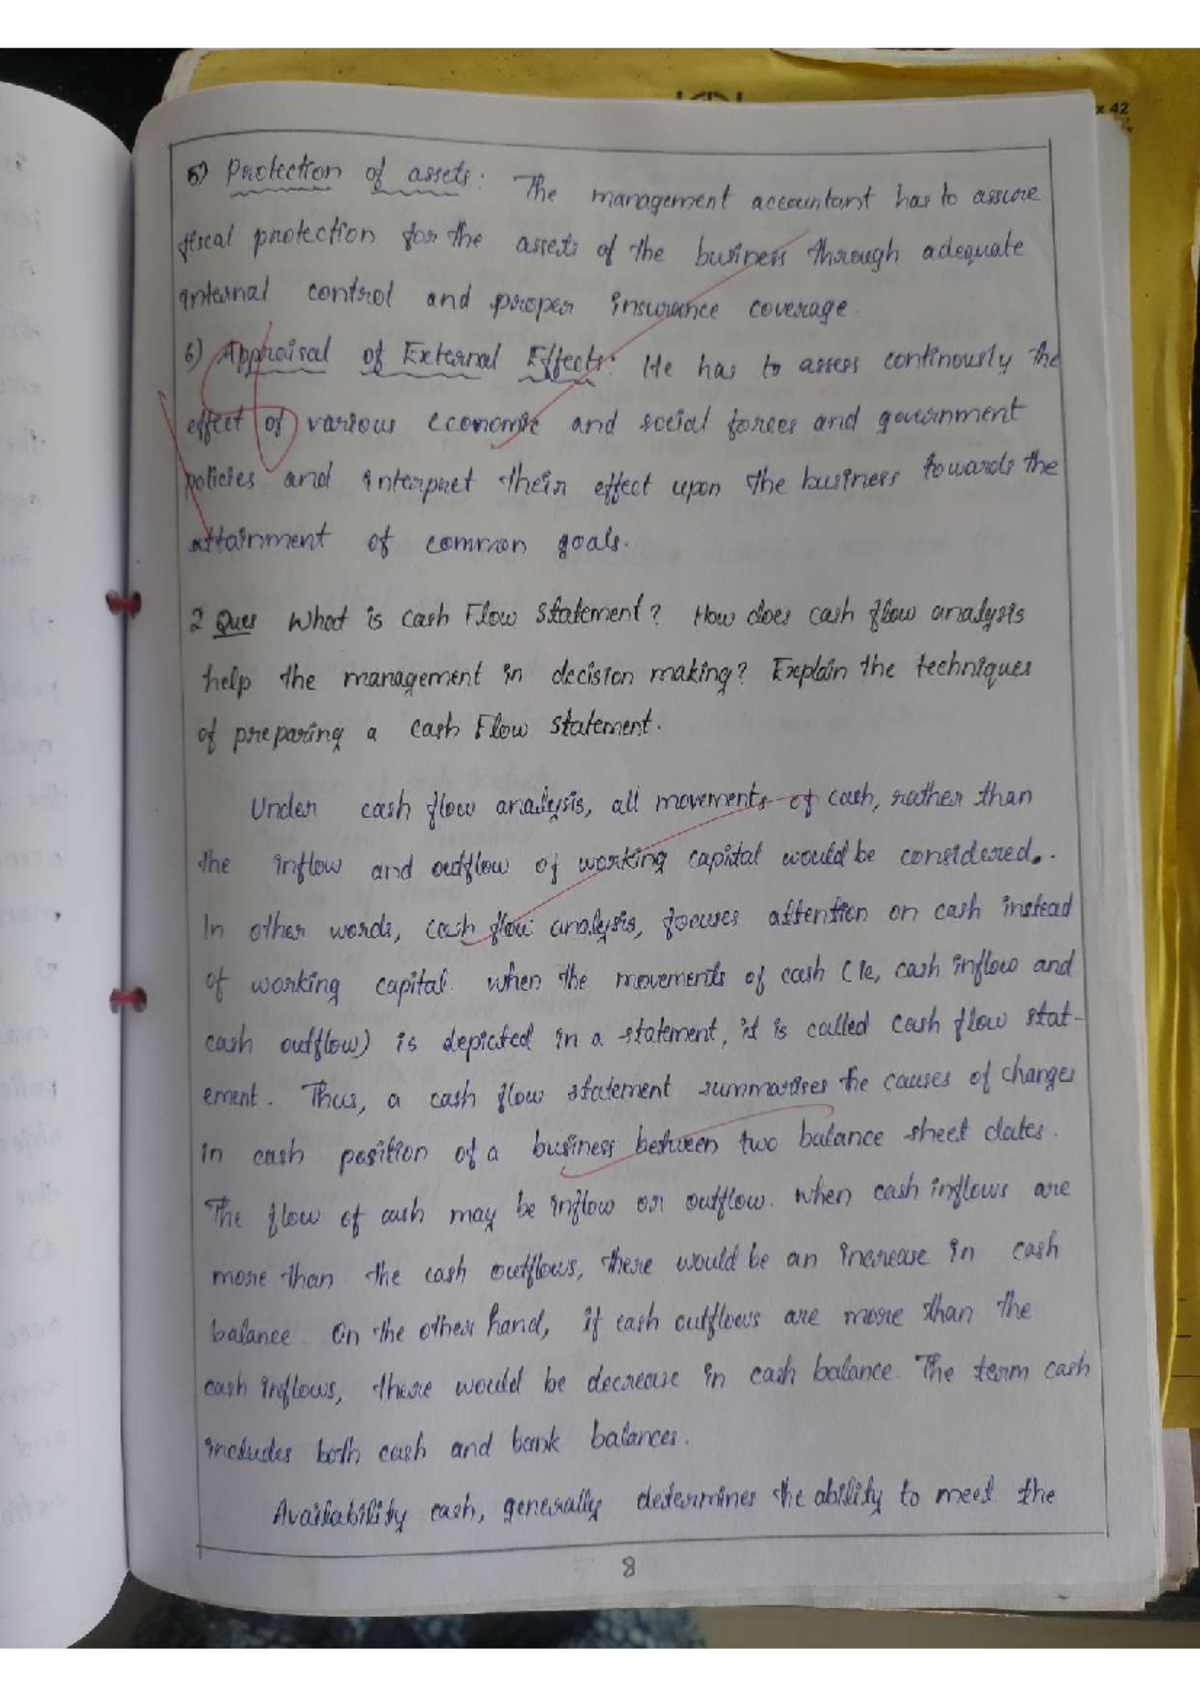 x 42
5) Protection of assets: The management accountant has to assure
fiscal protection for the assets of the business through adequate
internal control and proper insurance coverage.
6) Appraisal of External Effects: He has to assess continously the
effect of various economic and social forces and government
policies and interpret their effect upon the business towards the
attainment of common goals.
2 Ques What is cash Flow statement? How does cash flow analysis
help the management in decision making? Explain the techniques
of preparing a cash Flow statement.
Under cash flow analysis, all movements of cash, rather than
the inflow and outflow of working capital would be considered.
In other words, cash flow analysis, focuses attention on cash instead
of working capital. when the movements of cash (ie, cash inflow and
cash outflow) is depicted in a statement, it is called cash flow stat-
ement. Thus, a cash flow statement summarises the causes of changes
in cash position of a business between two balance sheet dates.
The flow of cash may be inflow or outflow. when cash inflows are
more than the cash outflows, there would be an increase in cash
balance. On the other hand, if cash outflows are more than the
cash inflows, there would be decrease in cash balance. The term cash
includes both cash and bank balances.
Availability cash, generally determines the ability to meet the
8